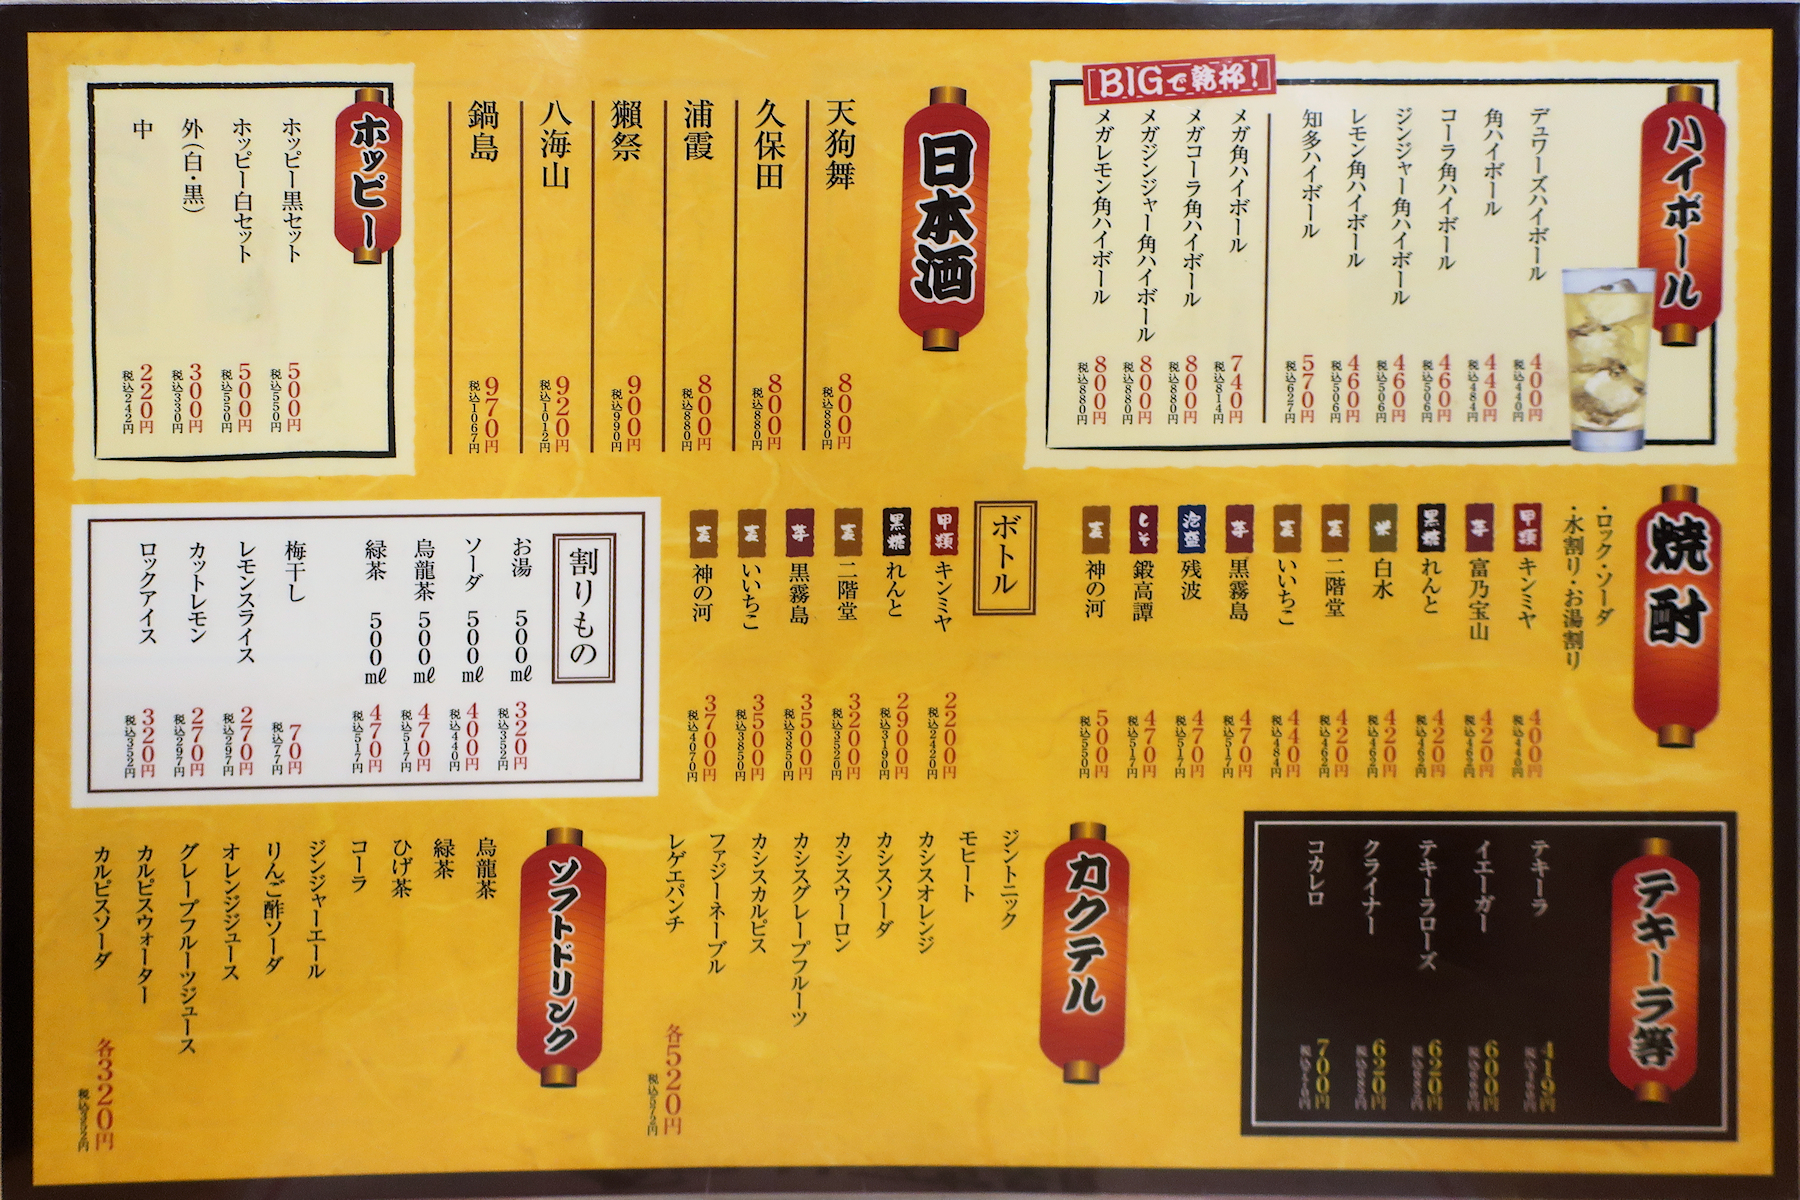 ハイボール
デュワーズハイボール 400円 税込440円
角ハイボール 440円 税込484円
コーラ角ハイボール 460円 税込506円
ジンジャー角ハイボール 460円 税込506円
レモン角ハイボール 460円 税込506円
知多ハイボール 570円 税込627円
BIGで乾杯!
メガ角ハイボール 740円 税込814円
メガコーラ角ハイボール 800円 税込880円
メガジンジャー角ハイボール 800円 税込880円
メガレモン角ハイボール 800円 税込880円
日本酒
天狗舞 800円 税込880円
久保田 800円 税込880円
浦霞 800円 税込880円
獺祭 900円 税込990円
八海山 920円 税込1012円
鍋島 970円 税込1067円
ホッピー
ホッピー黒セット 500円 税込550円
ホッピー白セット 500円 税込550円
外(白・黒) 300円 税込330円
中 220円 税込242円
焼酎
・ロック・ソーダ
・水割り・お湯割り
甲類 キンミヤ 400円 税込440円
芋 富乃宝山 420円 税込462円
黒糖 れんと 420円 税込462円
米 白水 420円 税込462円
麦 二階堂 420円 税込462円
麦 いいちこ 440円 税込484円
芋 黒霧島 470円 税込517円
泡盛 残波 470円 税込517円
しそ 鍛高譚 470円 税込517円
麦 神の河 500円 税込550円
ボトル
甲類 キンミヤ 2200円 税込2420円
黒糖 れんと 2900円 税込3190円
麦 二階堂 3200円 税込3520円
芋 黒霧島 3500円 税込3850円
麦 いいちこ 3500円 税込3850円
麦 神の河 3700円 税込4070円
割りもの
お湯 500㎖ 320円 税込352円
ソーダ 500㎖ 400円 税込440円
烏龍茶 500㎖ 470円 税込517円
緑茶 500㎖ 470円 税込517円
梅干し 70円 税込77円
レモンスライス 270円 税込297円
カットレモン 270円 税込297円
ロックアイス 320円 税込352円
テキーラ等
テキーラ 419円
イエーガー 600円 税込660円
テキーラローズ 620円 税込682円
クライナー 620円 税込682円
コカレロ 700円
カクテル
ジントニック
モヒート
カシスオレンジ
カシスソーダ
カシスウーロン
カシスグレープフルーツ
カシスカルピス
ファジーネーブル
レゲエパンチ
各520円 税込572円
ソフトドリンク
烏龍茶
緑茶
ひげ茶
コーラ
ジンジャーエール
りんご酢ソーダ
オレンジジュース
グレープフルーツジュース
カルピスウォーター
カルピスソーダ
各320円 税込352円